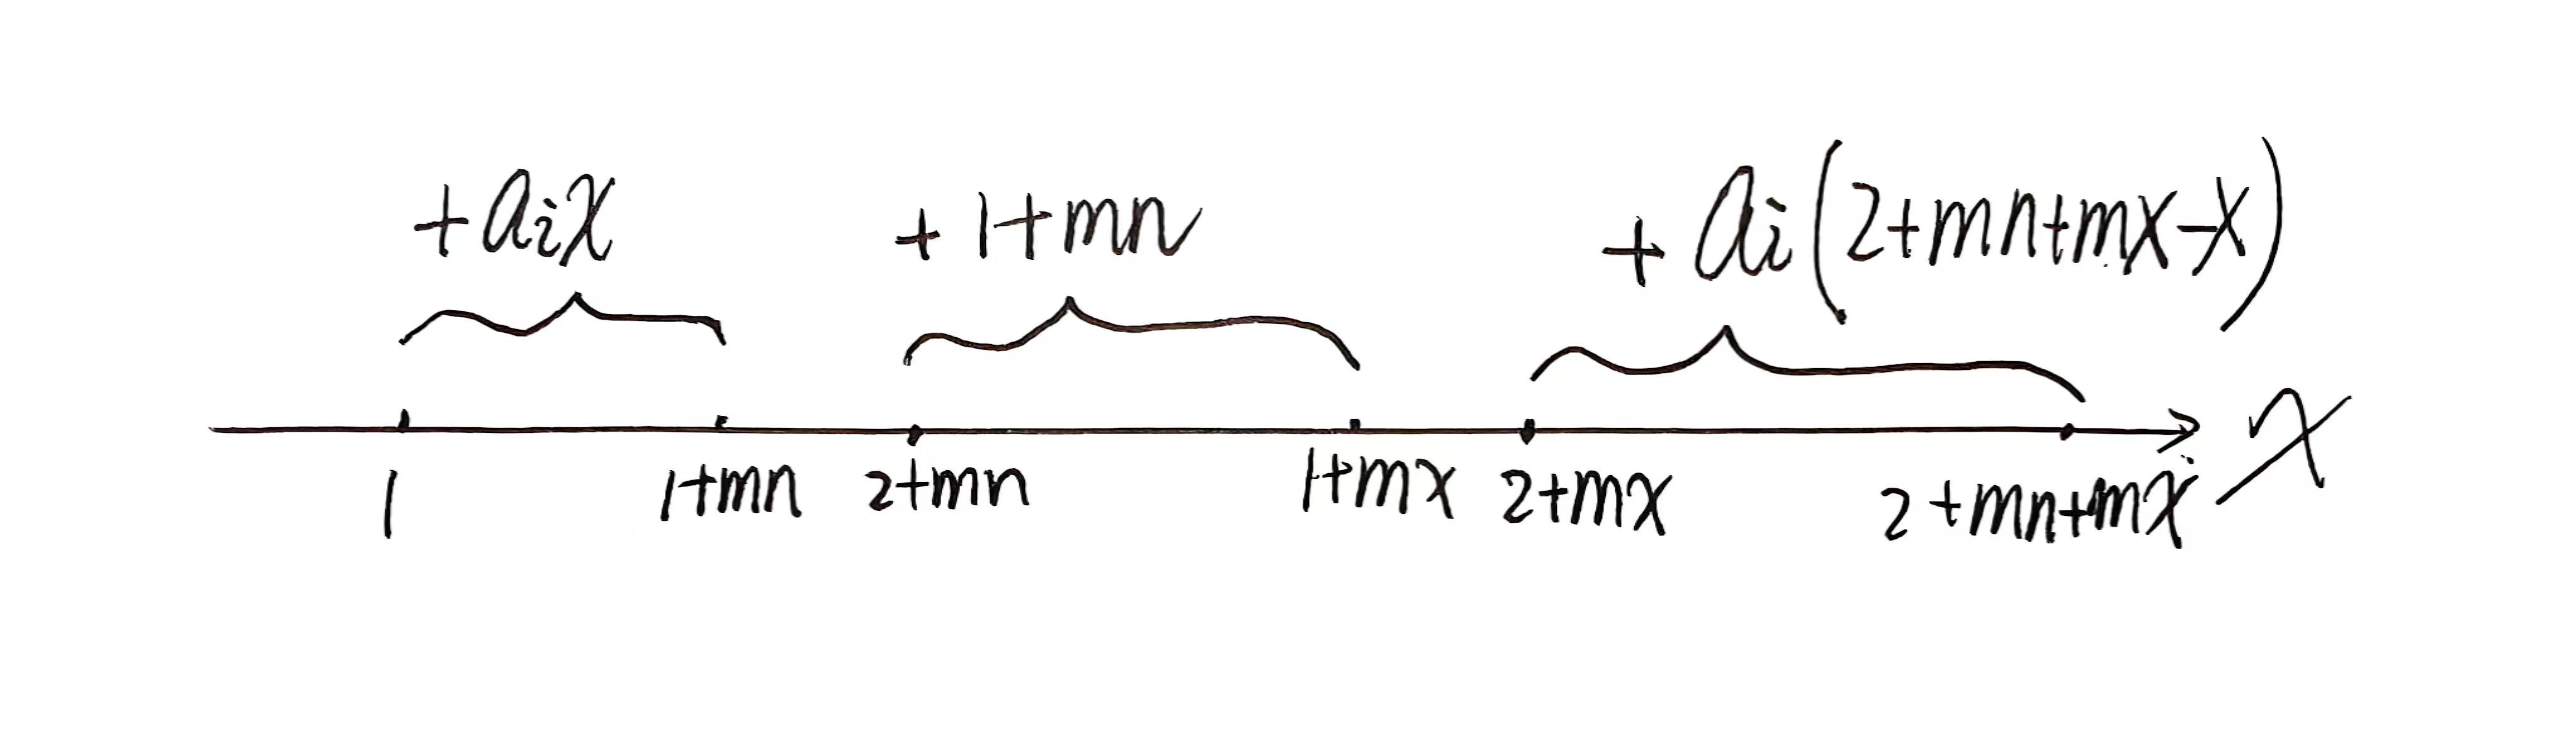 +aix +1+mn +ai(2+mn+mx-x)
1 1+mn 2+mn 1+mx 2+mx 2+mn+mx x